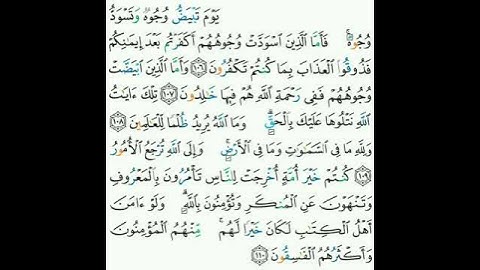 يَوْمَ تَبْيَضُّ وُجُوهٌ وَتَسْوَدُّ
وُجُوهٌ ۚ فَأَمَّا الَّذِينَ اسْوَدَّتْ وُجُوهُهُمْ أَكَفَرْتُم بَعْدَ إِيمَانِكُمْ
فَذُوقُوا الْعَذَابَ بِمَا كُنتُمْ تَكْفُرُونَ ١٠٦ وَأَمَّا الَّذِينَ ابْيَضَّتْ
وُجُوهُهُمْ فَفِى رَحْمَةِ اللَّهِ هُمْ فِيهَا خَالِدُونَ ١٠٧ تِلْكَ ءَايَاتُ
اللَّهِ نَتْلُوهَا عَلَيْكَ بِالْحَقِّ ۗ وَمَا اللَّهُ يُرِيدُ ظُلْمًا لِّلْعَالَمِينَ ١٠٨
وَلِلَّهِ مَا فِى السَّمَاوَاتِ وَمَا فِى الْأَرْضِ ۚ وَإِلَى اللَّهِ تُرْجَعُ الْأُمُورُ
١٠٩ كُنتُمْ خَيْرَ أُمَّةٍ أُخْرِجَتْ لِلنَّاسِ تَأْمُرُونَ بِالْمَعْرُوفِ
وَتَنْهَوْنَ عَنِ الْمُنكَرِ وَتُؤْمِنُونَ بِاللَّهِ ۗ وَلَوْ ءَامَنَ
أَهْلُ الْكِتَابِ لَكَانَ خَيْرًا لَّهُم ۚ مِّنْهُمُ الْمُؤْمِنُونَ
وَأَكْثَرُهُمُ الْفَاسِقُونَ ١١٠